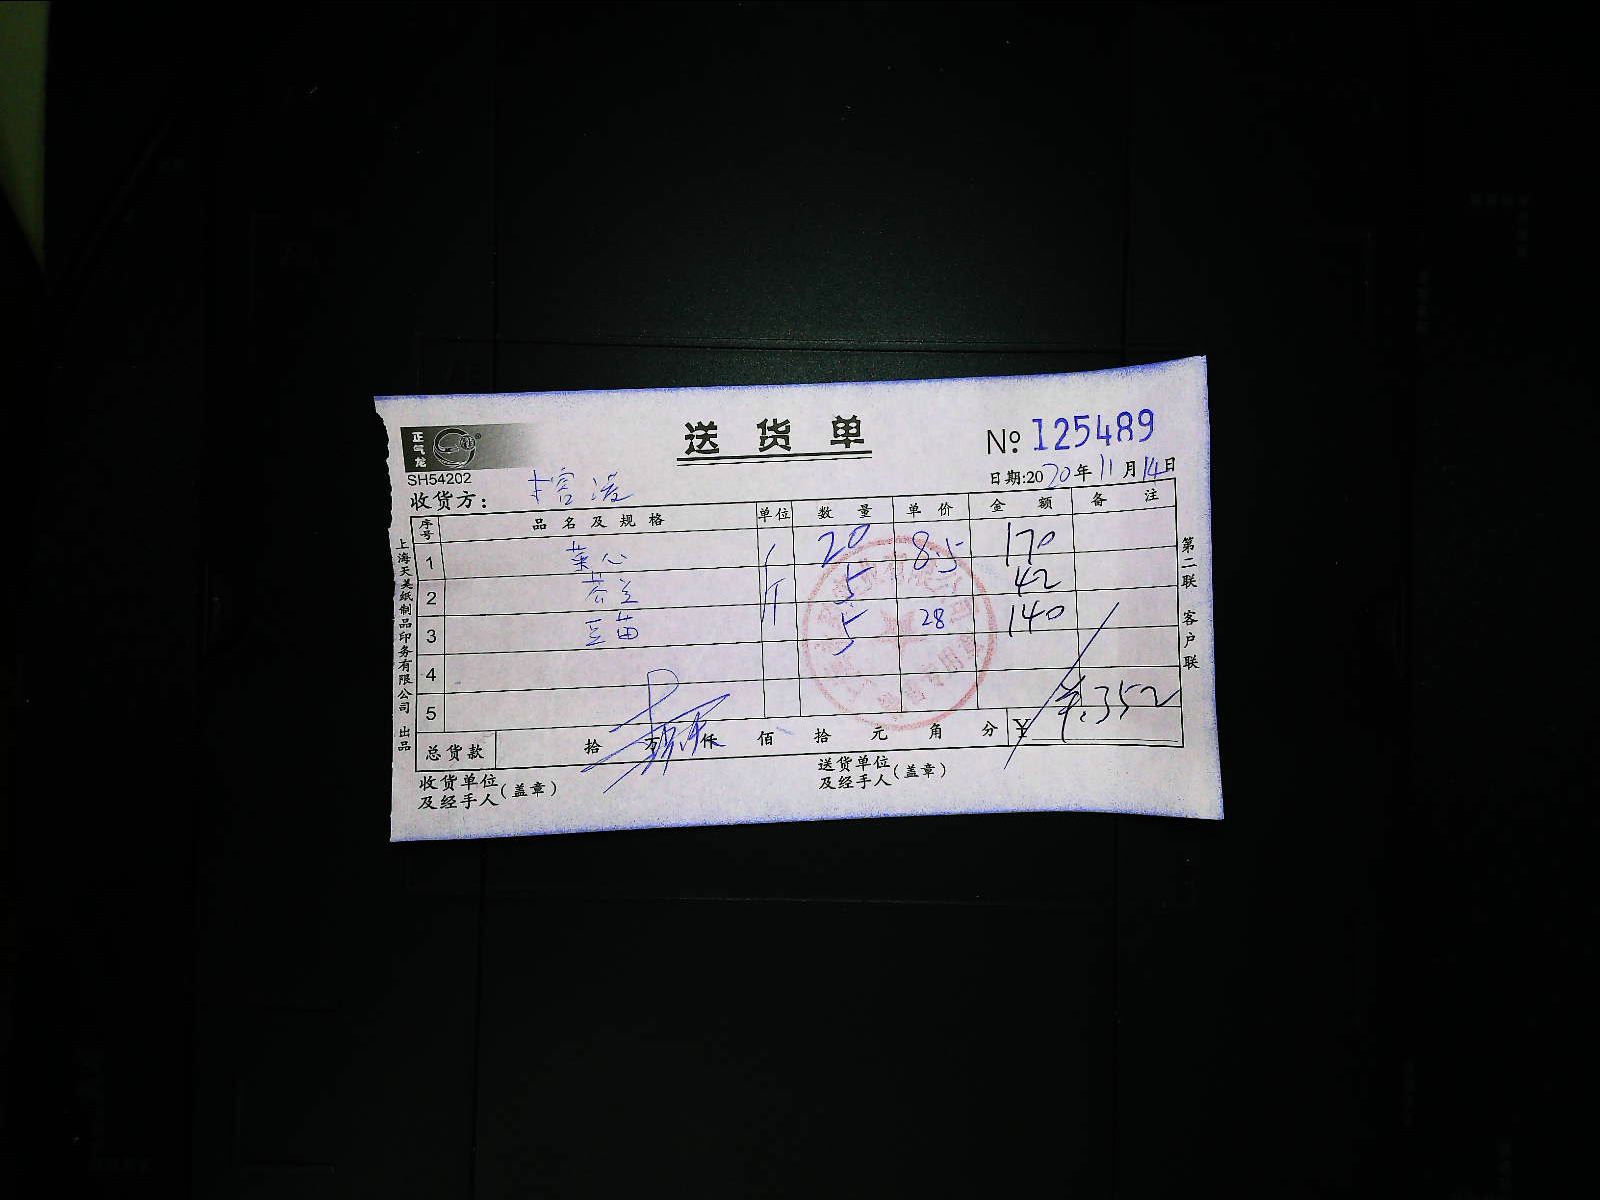 正气龙
SH54202
送货单
№ 125489
日期:2020年11月14日
收货方:
序号 品名及规格 单位 数量 单价 金额 备注
1 菜心 20 8.5 170
2 芥兰 斤 5 42
3 豆苗 5 28 140
4
5
总货款 拾 万 仟 佰 拾 元 角 分 ¥ ¥:352
收货单位及经手人(盖章)
送货单位及经手人(盖章)
上海天美纸制品印务有限公司 出品
第二联 客户联